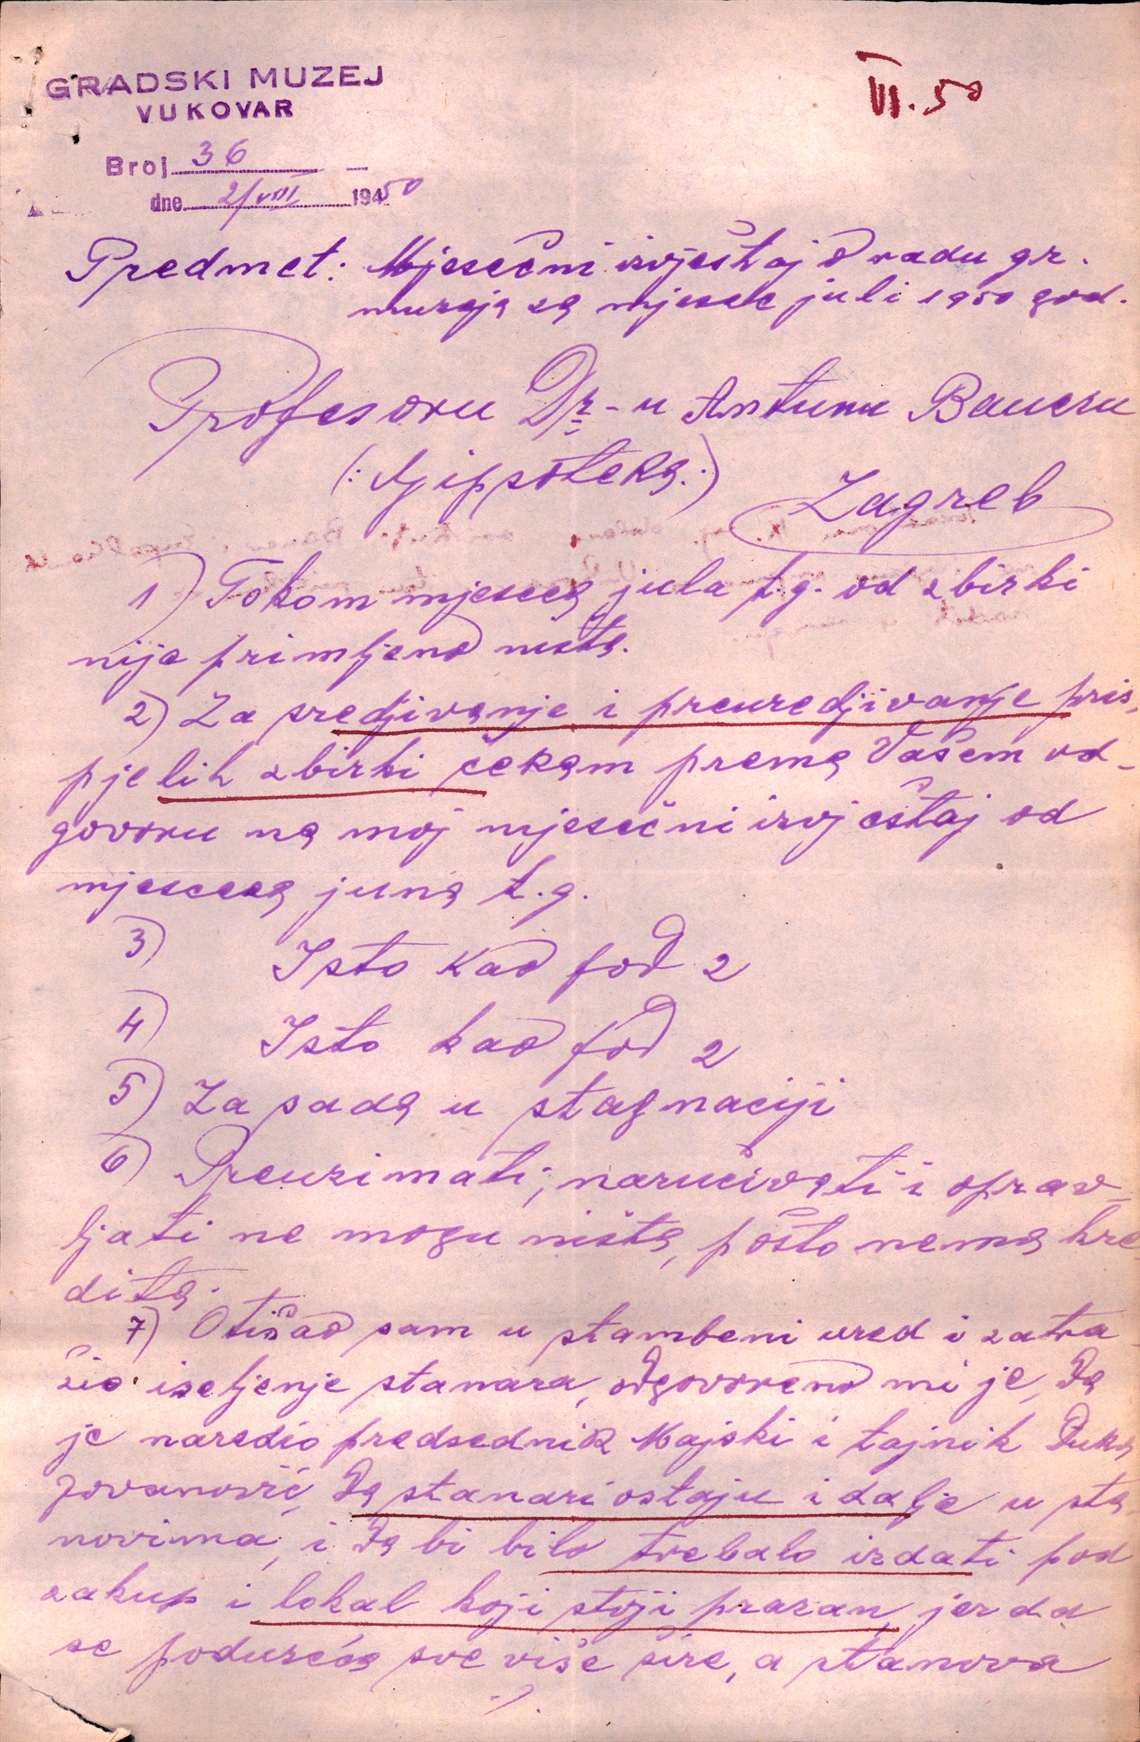 GRADSKI MUZEJ
VUKOVAR
VII. 50
Broj 36
dne 2/VIII 1950
Predmet: Mjesečni izvještaj o radu gr.
muzeja za mjesec juli 1950 god.
Profesoru Dr-u Antunu Baueru
(: Gipsoteka :)
Zagreb
1) Tokom mjeseca jula t.g. od zbirki
nije primljeno ništa.
2) Za sredjivanje i preuredjivanje pris-
pjelih zbirki čekam prema Vašem od-
govoru na moj mjesečni izvještaj od
mjeseca juna t.g.
3) Isto kao pod 2
4) Isto kao pod 2
5) Za sada u stagnaciji
6) Preuzimati, naručivati i oprav-
ljati ne mogu ništa, pošto nema kre
dita.
7) Otišao sam u stambeni ured i zatra
žio iseljenje stanara, odgovoreno mi je, da
je naredio predsednik Majski i tajnik Duka
Jovanović, da stanari ostaju i dalje u sta-
novima, i da bi bilo trebalo izdati pod
zakup i lokal koji stoji prazan, jer da
se poduzeća sve više šire, a stanova
./.